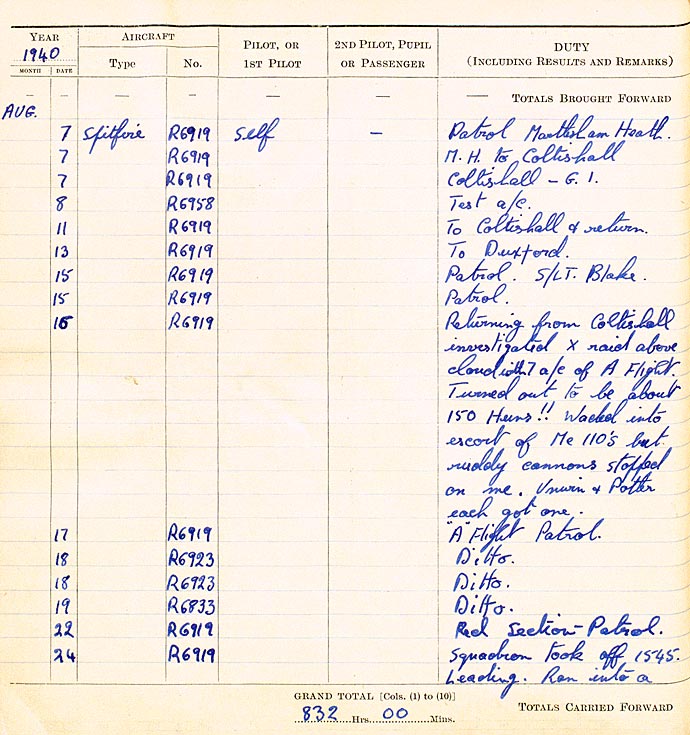 YEAR AIRCRAFT PILOT, OR 2ND PILOT, PUPIL DUTY
1940 Type No. 1ST PILOT OR PASSENGER (INCLUDING RESULTS AND REMARKS)
MONTH DATE
— — — — — — — TOTALS BROUGHT FORWARD
AUG.
7 Spitfire R6919 Self — Patrol Martlesham Heath.
7 R6919 M.H. to Coltishall
7 R6919 Coltishall – G.1.
8 R6958 Test a/c.
11 R6919 To Coltishall & return.
13 R6919 To Duxford.
15 R6919 Patrol. S/LT. Blake.
15 R6919 Patrol.
16 R6919 Returning from Coltishall
investigated X raid above
cloud with 7 a/c of A Flight.
Turned out to be about
150 Huns!! Wacked into
escort of Me 110's but
ruddy cannons stopped
on me. Unwin & Potter
each got one.
17 R6919 "A" Flight Patrol.
18 R6923 Ditto.
18 R6923 Ditto.
19 R6833 Ditto.
22 R6919 Red Section-Patrol.
24 R6919 Squadron took off 1545.
Leading. Ran into a
GRAND TOTAL [Cols. (1) to (10)]
832 Hrs. 00 Mins. TOTALS CARRIED FORWARD